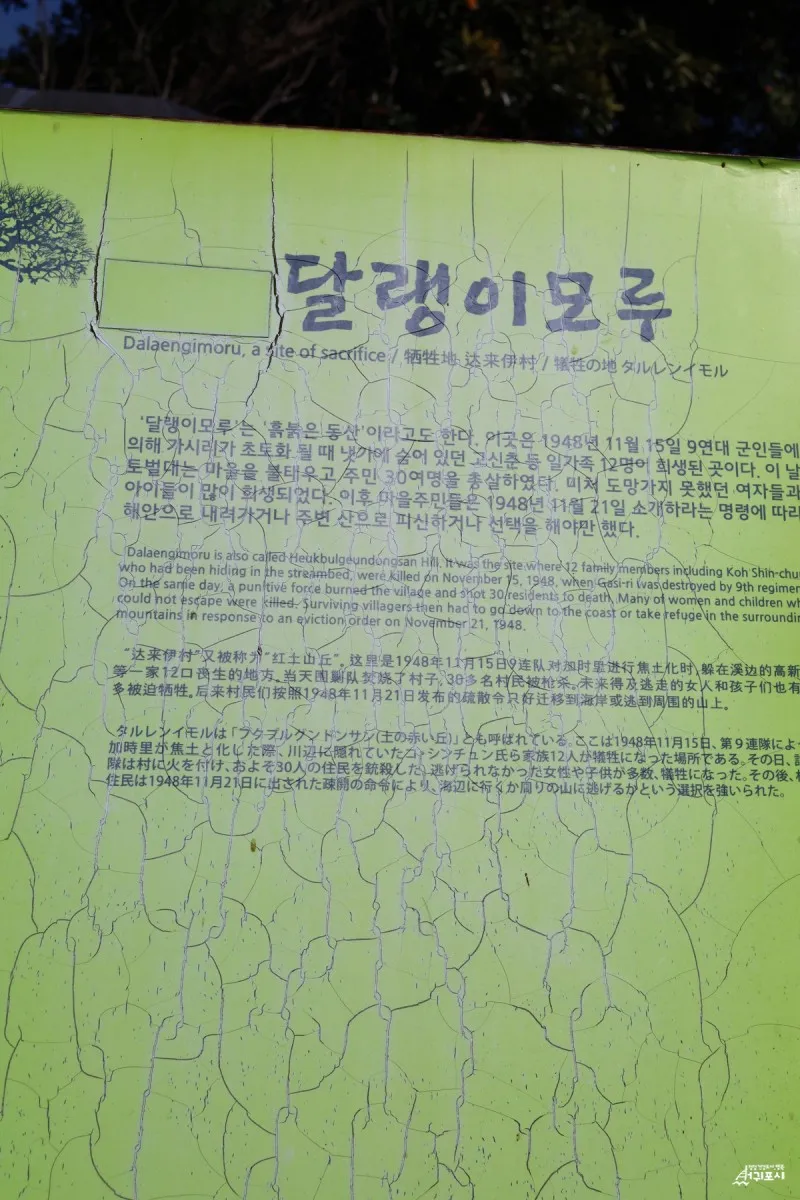 달랭이모루
Dalaengimoru, a site of sacrifice / 牺牲地 达来伊村 / 犠牲の地 タルレンイモル
'달랭이모루'는 '흙붉은 동산'이라고도 한다. 이곳은 1948년 11월 15일 9연대 군인들에
의해 가시리가 초토화 될 때 냇가에 숨어 있던 고신춘 등 일가족 12명이 희생된 곳이다. 이 날
토벌대는 마을을 불태우고 주민 30여명을 총살하였다. 미처 도망가지 못했던 여자들과
아이들이 많이 희생되었다. 이후 마을주민들은 1948년 11월 21일 소개하라는 명령에 따라
해안으로 내려가거나 주변 산으로 피신하거나 선택을 해야만 했다.
Dalaengimoru is also called Heukbulgeundongsan Hill. It was the site where 12 family members including Koh Shin-chu
who had been hiding in the streambed, were killed on November 15, 1948, when Gasi-ri was destroyed by 9th regimen
On the same day, a punitive force burned the village and shot 30 residents to death. Many of women and children wh
could not escape were killed. Surviving villagers then had to go down to the coast or take refuge in the surroundin
mountains in response to an eviction order on November 21, 1948.
"达来伊村"又被称为"红土山丘"。这里是1948年11月15日9连队对加时里进行焦土化时, 躲在溪边的高新
等一家12口丧生的地方。当天围剿队焚烧了村子, 30多名村民被枪杀。未来得及逃走的女人和孩子们也有
多被迫牺牲。后来村民们按照1948年11月21日发布的疏散令只好迁移到海岸或逃到周围的山上。
タルレンイモルは「フクブルグンドンサン(土の赤い丘)」とも呼ばれている。ここは1948年11月15日、第9連隊によ
加時里が焦土と化した際、川辺に隠れていたコ・シンチュン氏ら家族12人が犠牲になった場所である。その日、討
隊は村に火を付け、およそ30人の住民を銃殺した。逃げられなかった女性や子供が多数、犠牲になった。その後、村
住民は1948年11月21日に出された疎開の命令により、海辺に行くか周りの山に逃げるかという選択を強いられた。
서귀포시